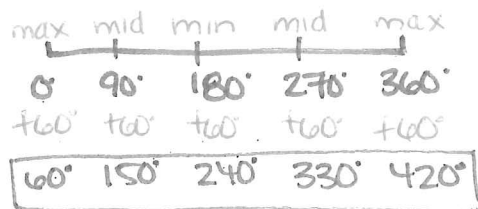 max mid min mid max
0° 90° 180° 270° 360°
+60° +60° +60° +60° +60°
60° 150° 240° 330° 420°